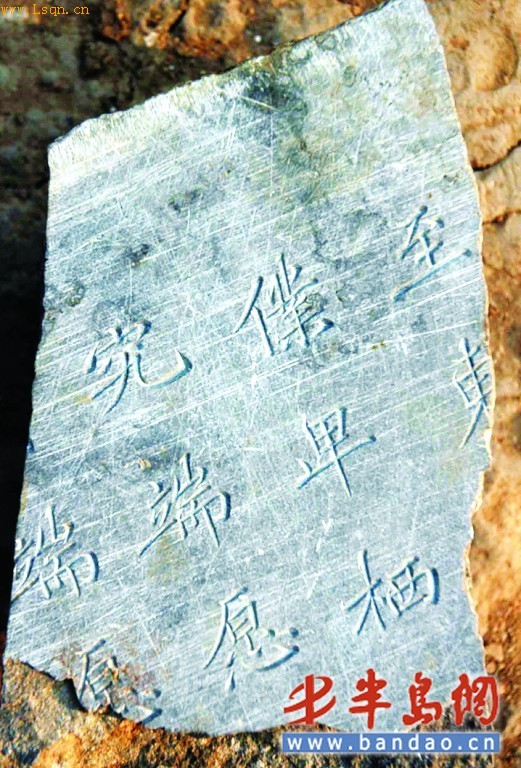 www.Lsqn.cn
至東
僕栖
究端息
端息
半岛网
www.bandao.cn